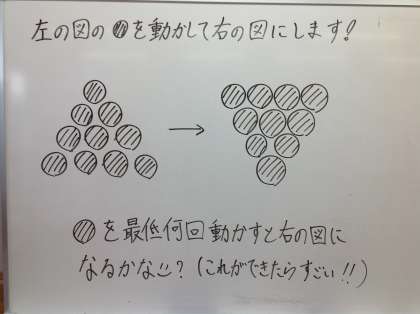 左の図の●を動かして右の図にします!
●を最低何回動かすと右の図に
なるかな!!? (これができたらすごい!!)